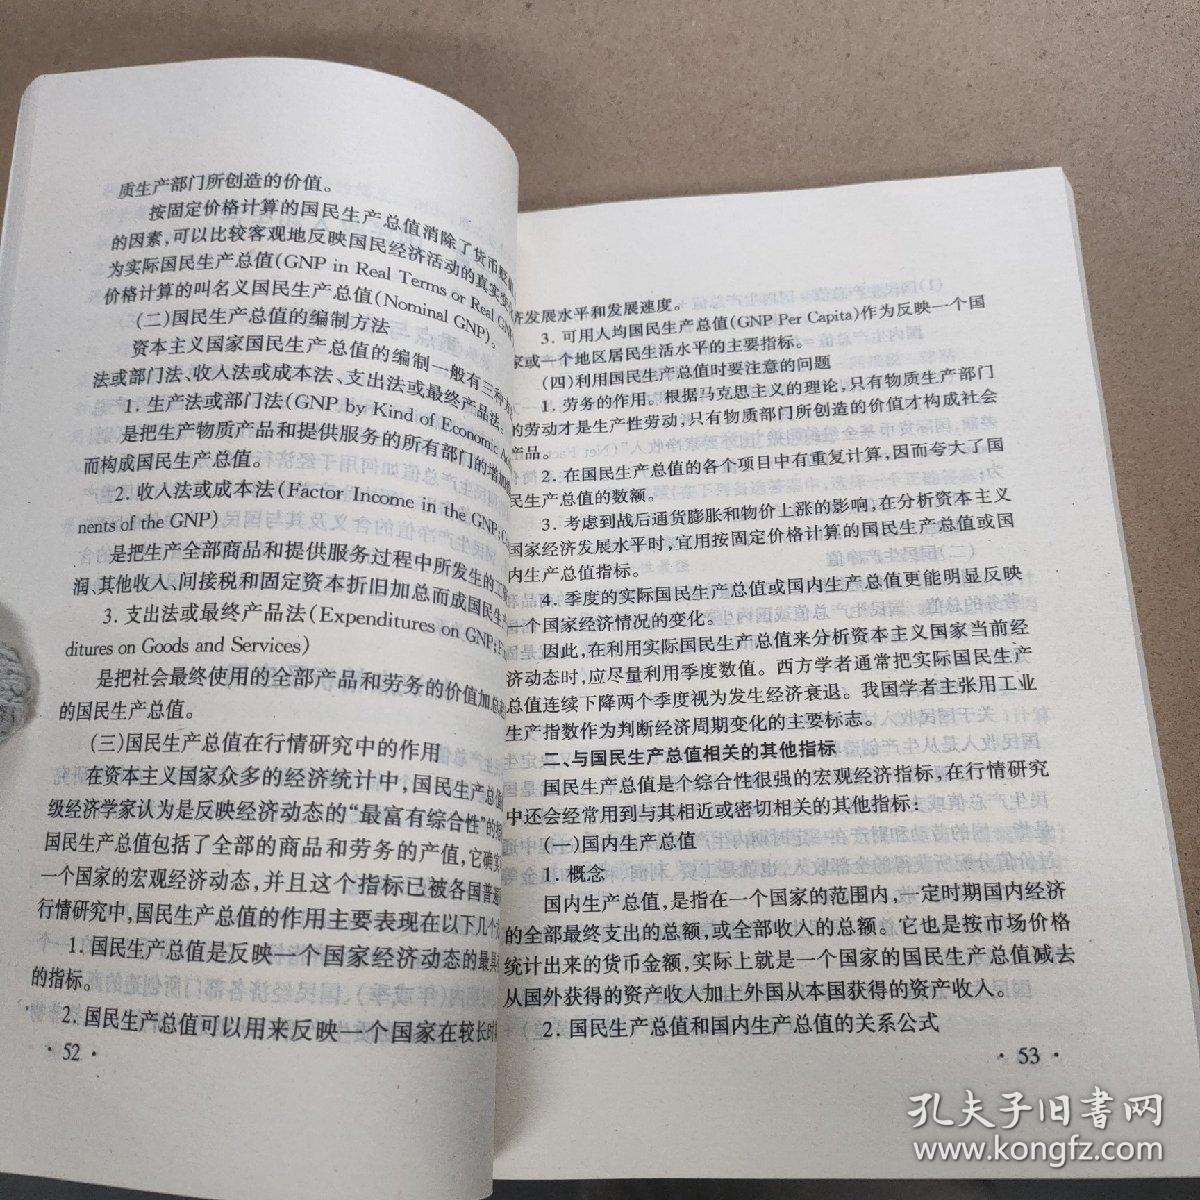 质生产部门所创造的价值。
按固定价格计算的国民生产总值消除了货币贬
的因素,可以比较客观地反映国民经济活动的真实变
为实际国民生产总值(GNP in Real Terms or Real GN
价格计算的叫名义国民生产总值(Nominal GNP)。
(二)国民生产总值的编制方法
资本主义国家国民生产总值的编制一般有三种方
法或部门法、收入法或成本法、支出法或最终产品法。
1. 生产法或部门法(GNP by Kind of Economic Ac
是把生产物质产品和提供服务的所有部门的增加
而构成国民生产总值。
2. 收入法或成本法(Factor Income in the GNP;C
nents of the GNP)
是把生产全部商品和提供服务过程中所发生的工
润、其他收入、间接税和固定资本折旧加总而成国民生
3. 支出法或最终产品法(Expenditures on GNP;E
ditures on Goods and Services)
是把社会最终使用的全部产品和劳务的价值加总
的国民生产总值。
(三)国民生产总值在行情研究中的作用
在资本主义国家众多的经济统计中,国民生产总值
级经济学家认为是反映经济动态的“最富有综合性”的
国民生产总值包括了全部的商品和劳务的产值,它确实
一个国家的宏观经济动态,并且这个指标已被各国普遍
行情研究中,国民生产总值的作用主要表现在以下几个
1. 国民生产总值是反映一个国家经济动态的最
的指标。
2. 国民生产总值可以用来反映一个国家在较长时
· 52 ·
济发展水平和发展速度。
3. 可用人均国民生产总值(GNP Per Capita)作为反映一个国
家或一个地区居民生活水平的主要指标。
(四)利用国民生产总值时要注意的问题
1. 劳务的作用。根据马克思主义的理论,只有物质生产部门
的劳动才是生产性劳动,只有物质部门所创造的价值才构成社会
产品。
2. 在国民生产总值的各个项目中有重复计算,因而夸大了国
民生产总值的数额。
3. 考虑到战后通货膨胀和物价上涨的影响,在分析资本主义
国家经济发展水平时,宜用按固定价格计算的国民生产总值或国
内生产总值指标。
4. 季度的实际国民生产总值或国内生产总值更能明显反映
一个国家经济情况的变化。
因此,在利用实际国民生产总值来分析资本主义国家当前经
济动态时,应尽量利用季度数值。西方学者通常把实际国民生产
总值连续下降两个季度视为发生经济衰退。我国学者主张用工业
生产指数作为判断经济周期变化的主要标志。
二、与国民生产总值相关的其他指标
国民生产总值是个综合性很强的宏观经济指标,在行情研究
中还会经常用到与其相近或密切相关的其他指标:
(一)国内生产总值
1. 概念
国内生产总值,是指在一个国家的范围内,一定时期国内经济
的全部最终支出的总额,或全部收入的总额。它也是按市场价格
统计出来的货币金额,实际上就是一个国家的国民生产总值减去
从国外获得的资产收入加上外国从本国获得的资产收入。
2. 国民生产总值和国内生产总值的关系公式
· 53 ·
孔夫子旧书网
www.kongfz.com